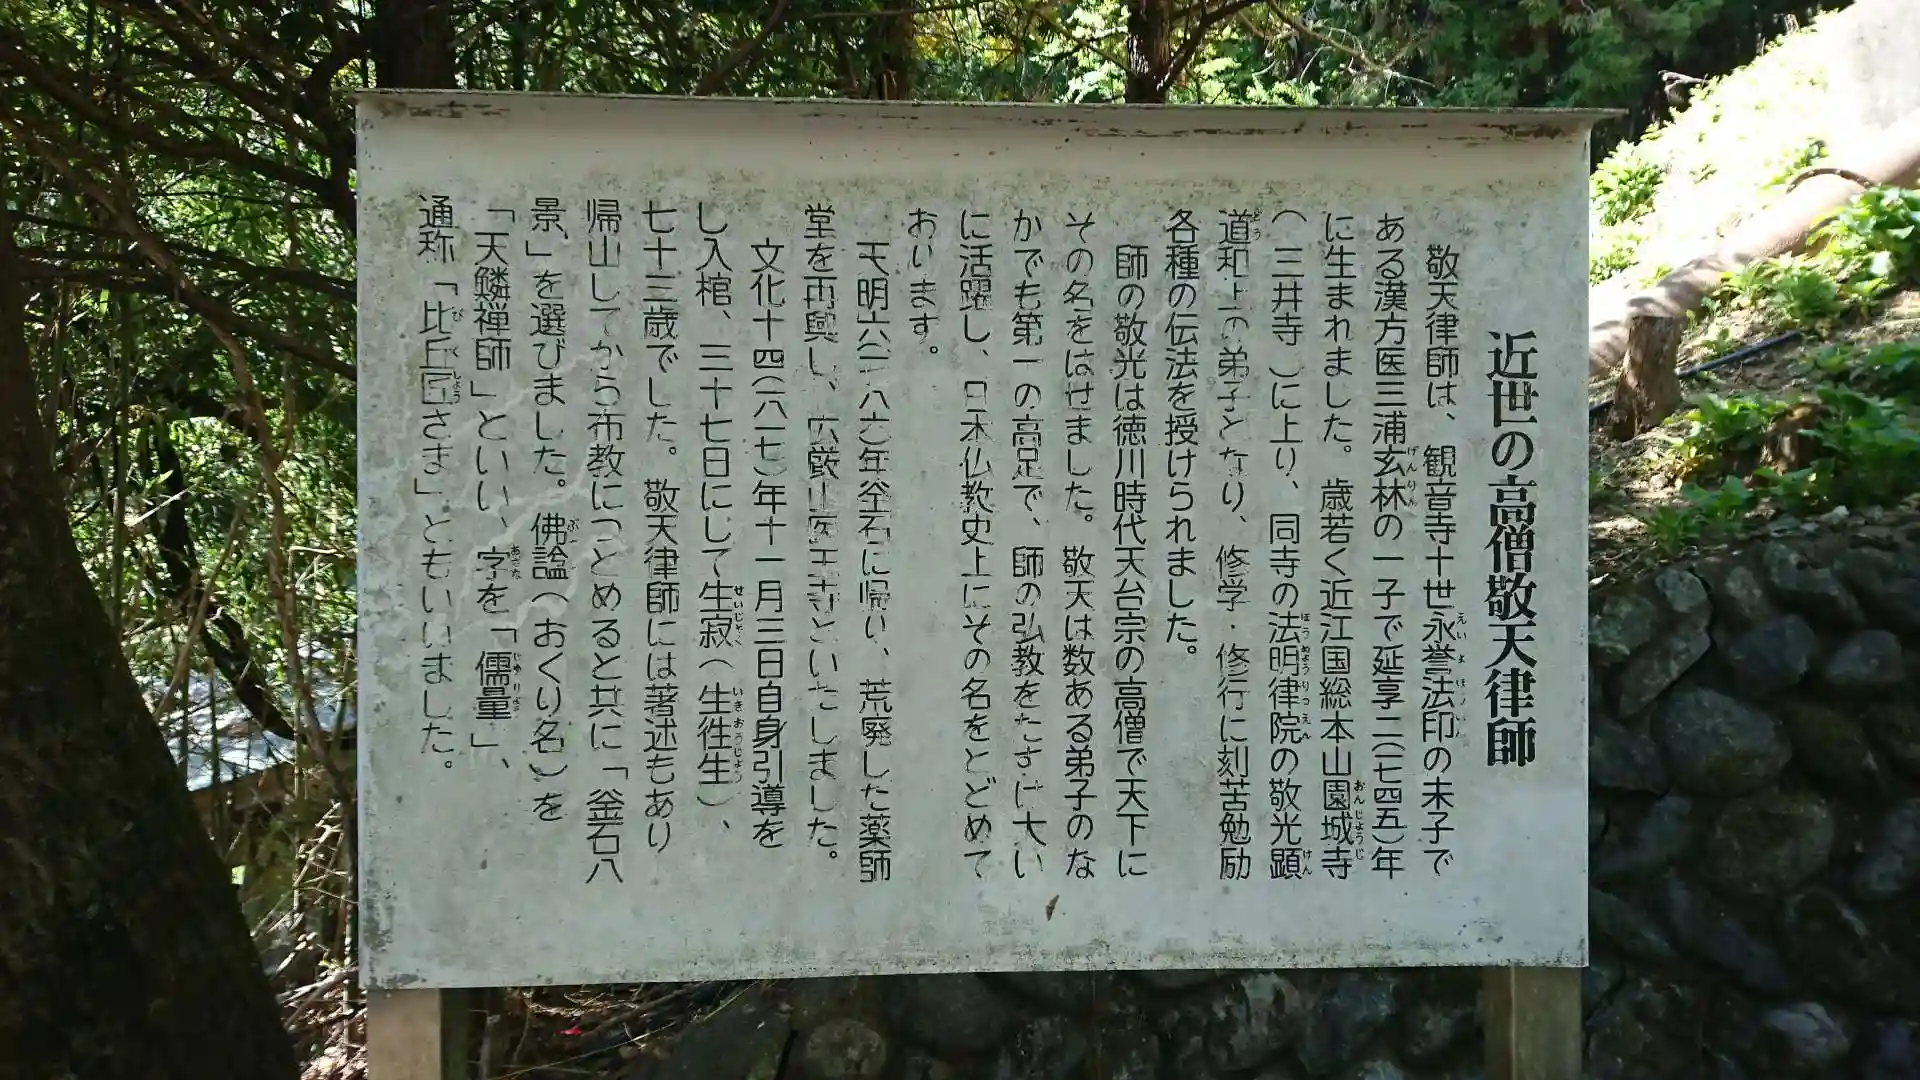 近世の高僧敬天律師
敬天律師は、観音寺十世永誉法印の末子で
ある漢方医三浦玄林の一子で延享二(一七四五)年
に生まれました。歳若く近江国総本山園城寺
(三井寺)に上り、同寺の法明律院の敬光顕
道和上の弟子となり、修学・修行に刻苦勉励
各種の伝法を授けられました。
師の敬光は徳川時代天台宗の高僧で天下に
その名をはせました。敬天は数ある弟子のな
かでも第一の高足で、師の弘教をたすけ大い
に活躍し、日本仏教史上にその名をとどめて
おります。
天明六(一七八六)年釜石に帰り、荒廃した薬師
堂を再興し、広厳山医王寺といたしました。
文化十四(一八一七)年十一月三日自身引導を
し入棺、三十七日にして生寂(生往生)、
七十三歳でした。敬天律師には著述もあり
帰山してから布教につとめると共に「釜石八
景」を選びました。佛諡(おくり名)を
「天鱗禅師」といい、字を「儒量」、
通称「比丘匠さま」ともいいました。